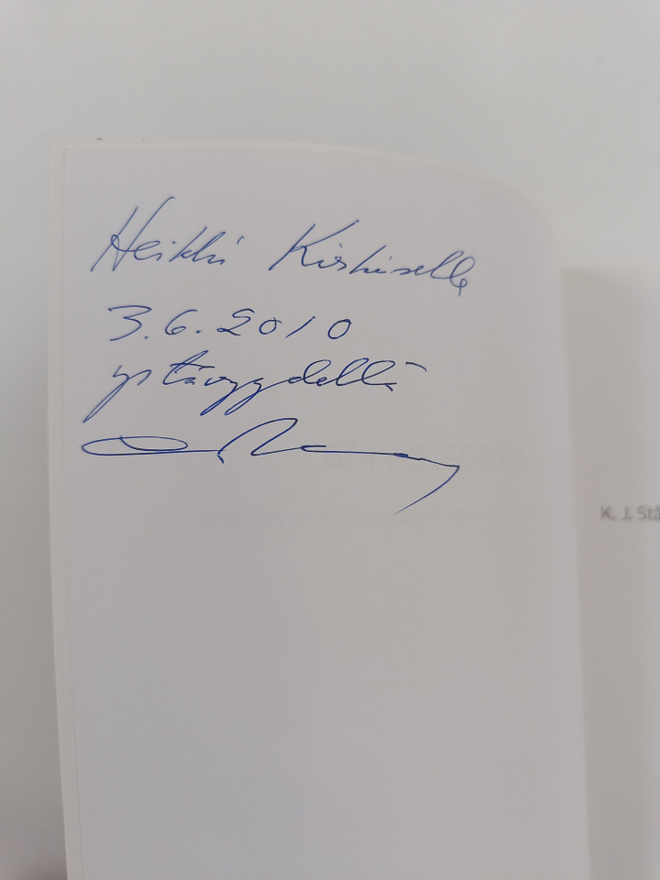 Heikki Kirkiselle
3.6.2010
ystävyydellä
K. J. Stå